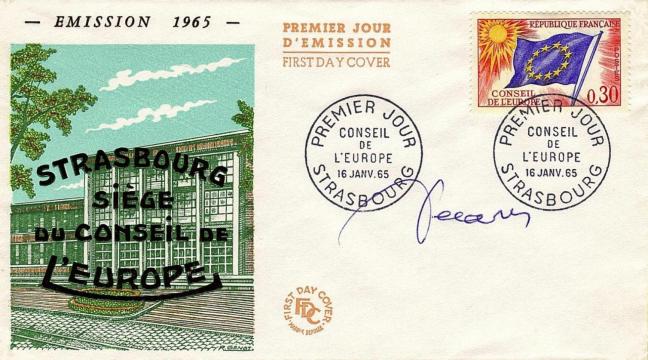 — EMISSION 1965 —
STRASBOURG
SIÈGE
DU CONSEIL DE
L'EUROPE
PREMIER JOUR
D'EMISSION
FIRST DAY COVER
RÉPUBLIQUE FRANÇAISE
CONSEIL
DE L'EUROPE
0,30
PREMIER JOUR
CONSEIL
DE
L'EUROPE
16 JANV. 65
STRASBOURG
PREMIER JOUR
CONSEIL
DE
L'EUROPE
16 JANV. 65
STRASBOURG
FIRST DAY COVER
FDC